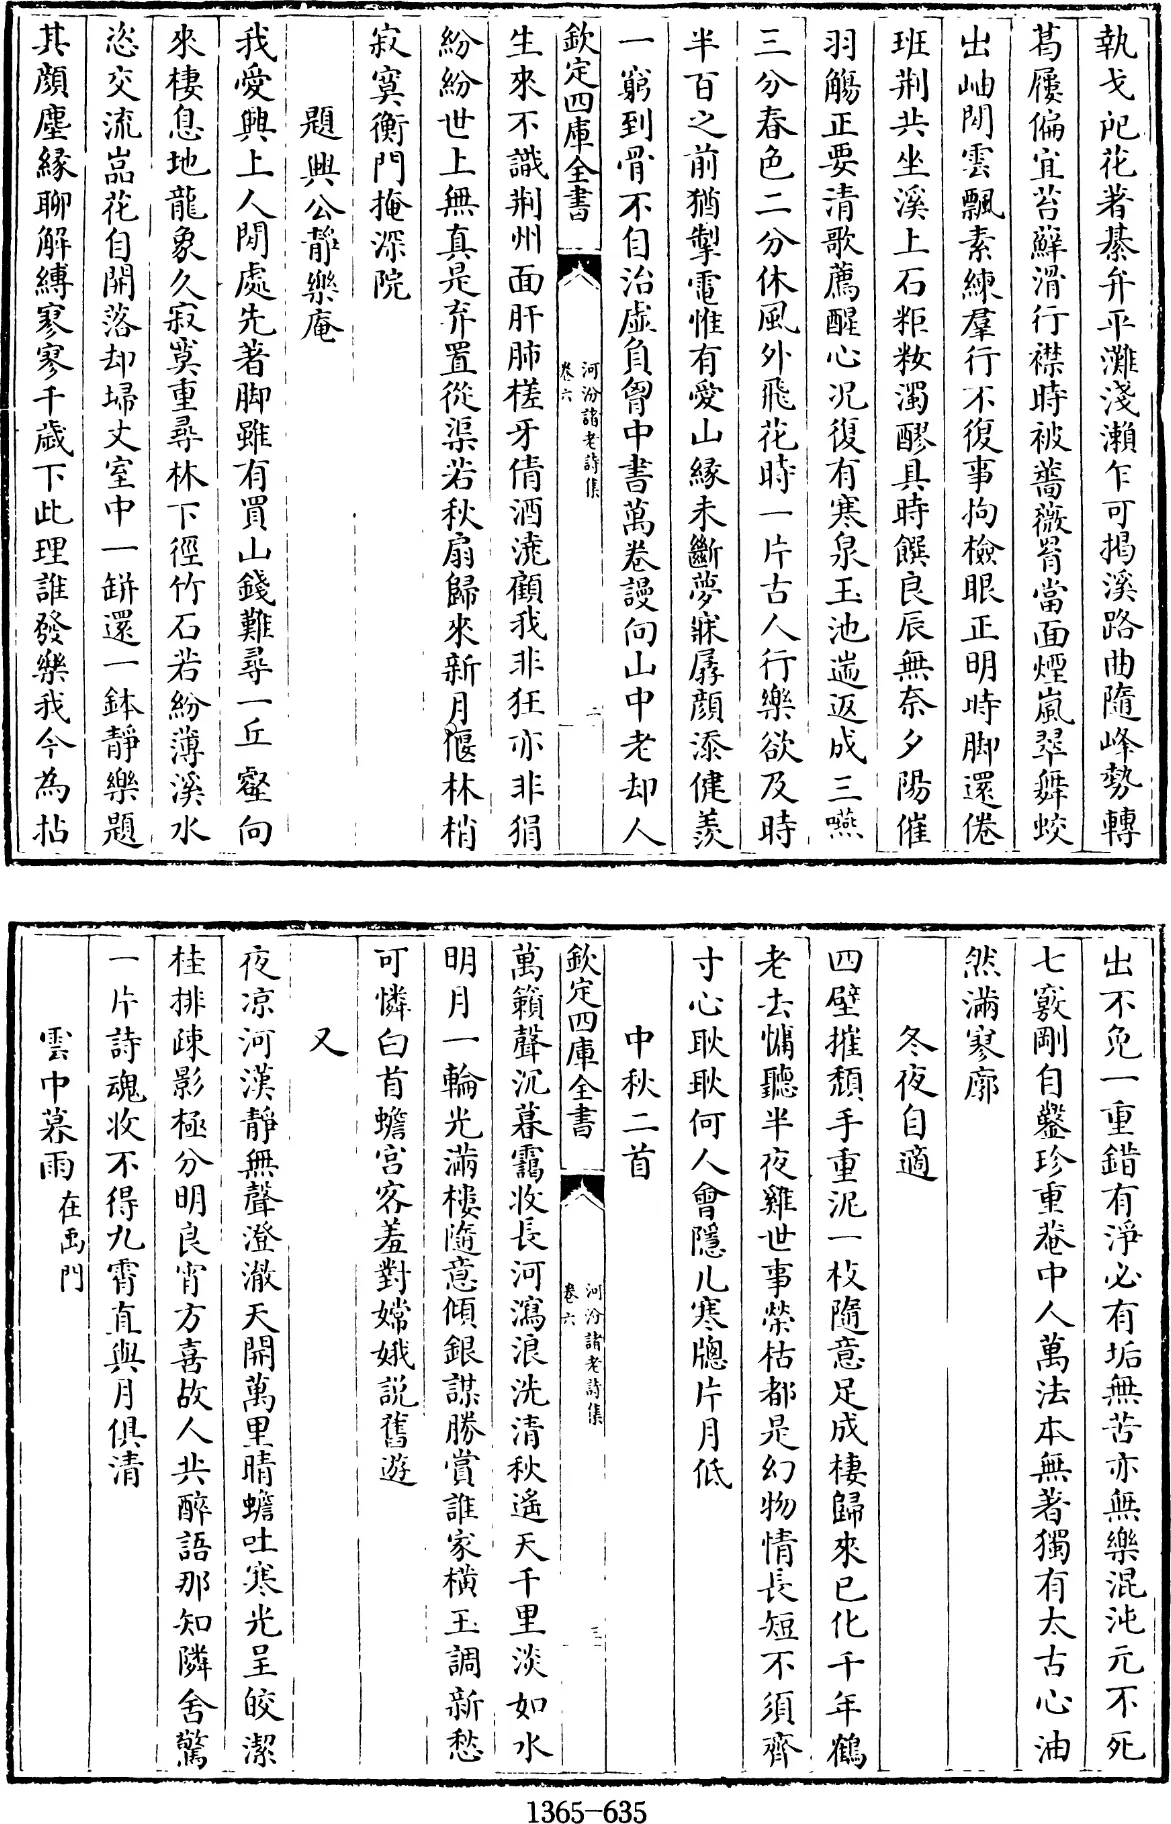 執戈戺花著綦弁平灘淺瀨乍可揭溪路曲隨峰勢轉
葛屨偏宜苔蘚滑行襟時被薔薇罥當面煙嵐翠舞蛟
出岫閒雲飄素練羣行不復事拘檢眼正明時脚還倦
班荆共坐溪上石粔籹濁醪具時饌良辰無奈夕陽催
羽觴正要清歌薦醒心况復有寒泉玉池湍返成三嚥
三分春色二分休風外飛花時一片古人行樂欲及時
半百之前猶掣電惟有愛山緣未斷夢寐孱顔添健羨
一窮到骨不自治虛負胷中書萬卷謾向山中老却人
欽定四庫全書
河汾諸老詩集
卷六
二
生來不識荆州面肝肺槎牙倩酒澆顧我非狂亦非狷
紛紛世上無真是弃置從渠若秋扇歸來新月偃林梢
寂寞衡門掩深院
題興公靜樂庵
我愛興上人閒處先著脚雖有買山錢難尋一丘壑向
來棲息地龍象久寂寞重尋林下徑竹石若紛薄溪水
恣交流嵓花自開落却埽丈室中一缾還一鉢靜樂題
其顔塵緣聊解縛寥寥千歲下此理誰發樂我今為拈
出不免一重錯有淨必有垢無苦亦無樂混沌元不死
七竅剛自鑿珍重菴中人萬法本無著獨有太古心油
然滿寥廓
冬夜自適
四壁摧頽手重泥一枚隨意足成棲歸來已化千年鶴
老去慵聽半夜雞世事榮枯都是幻物情長短不須齊
寸心耿耿何人會隱几寒牕片月低
中秋二首
欽定四庫全書
河汾諸老詩集
卷六
三
萬籟聲沉暮靄收長河瀉浪洗清秋遙天千里淡如水
明月一輪光滿樓隨意傾銀謀勝賞誰家橫玉調新愁
可憐白首蟾宮客羞對嫦娥説舊遊
又
夜凉河漢靜無聲澄澈天開萬里晴蟾吐寒光呈皎潔
桂排疎影極分明良宵方喜故人共醉語那知隣舍驚
一片詩魂收不得九霄直與月俱清
雲中暮雨在禹門
1365-635